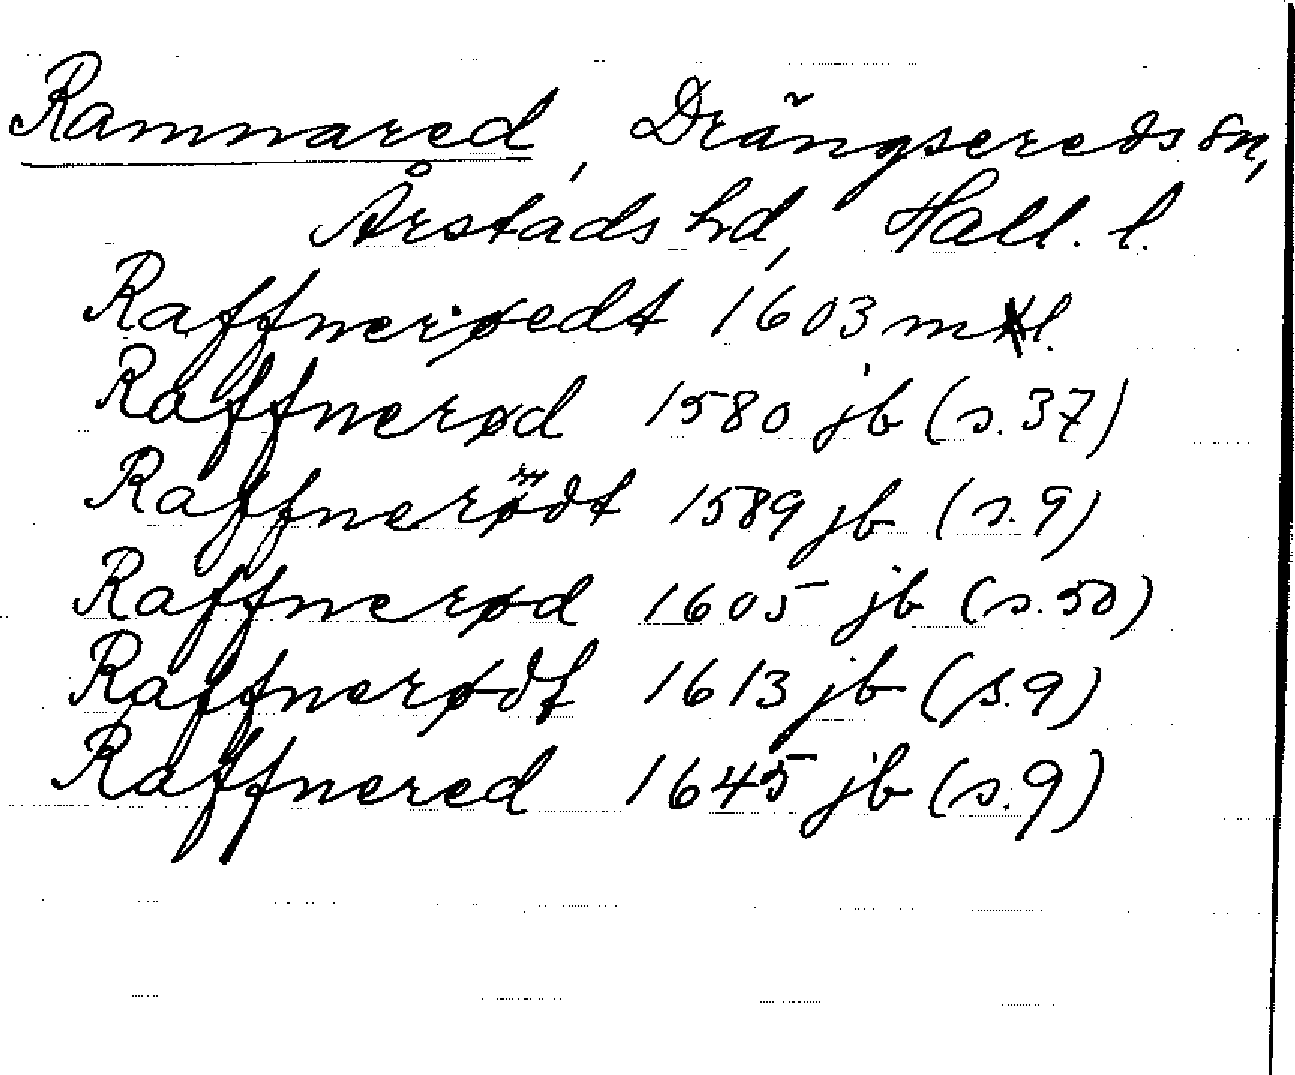 Ramnared, Drängsereds sn,
Årstads hd, Hall. l.
Raffnerøedt 1603 mtl.
Raffnerød 1580 jb (s. 37)
Raffnerødt 1589 jb (s. 9)
Raffnerød 1605 jb (s. 50)
Raffnerødt 1613 jb (s. 9)
Raffnered 1645 jb (s. 9)